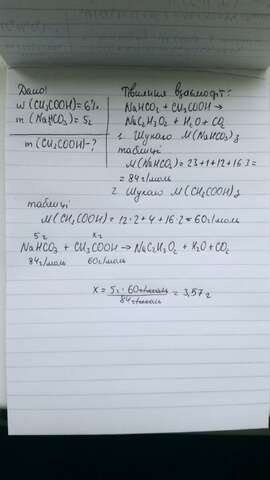 Дано:
w (CH₃COOH) = 6%
m (NaHCO₃) = 5г
m (CH₃COOH) - ?
взаємодії:
NaHCO₃ + CH₃COOH →
NaC₂H₃O₂ + H₂O + CO₂
1. Шукаю M(NaHCO₃) з
таблиці
M(NaHCO₃) = 23+1+12+16·3 =
= 84г/моль
2. Шукаю M(CH₃COOH) з
таблиці
M(CH₃COOH) = 12·2+4+16·2 = 60г/моль
5г xг
NaHCO₃ + CH₃COOH → NaC₂H₃O₂ + H₂O + CO₂
84г/моль 60г/моль
x = 5г · 60г/моль / 84г/моль = 3,57г